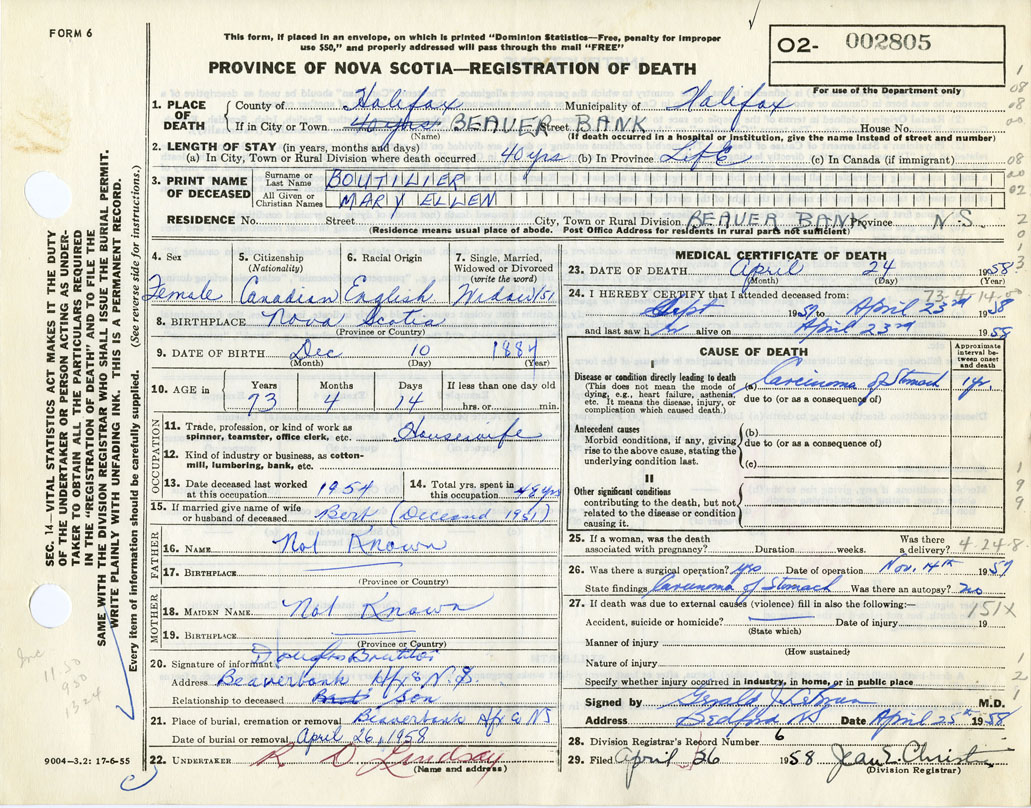 FORM 6
This form, if placed in an envelope, on which is printed "Dominion Statistics—Free, penalty for improper
use $50," and properly addressed will pass through the mail "FREE"
PROVINCE OF NOVA SCOTIA—REGISTRATION OF DEATH
O2- 002805
For use of the Department only
1. PLACE OF DEATH
County of Halifax Municipality of Halifax
If in City or Town 40 yrs BEAVER BANK Street House No.
(Name) (If death occurred in a hospital or institution, give the name instead of street and number)
2. LENGTH OF STAY (in years, months and days)
(a) In City, Town or Rural Division where death occurred 40 yrs (b) In Province LifE (c) In Canada (if immigrant)
3. PRINT NAME OF DECEASED
Surname or Last Name BOUTILIER
All Given or Christian Names MARY ELLEN
RESIDENCE No. Street City, Town or Rural Division BEAVER BANK Province N-S.
(Residence means usual place of abode. Post Office Address for residents in rural parts not sufficient)
4. Sex
Female
5. Citizenship
(Nationality)
Canadian
6. Racial Origin
English
7. Single, Married,
Widowed or Divorced
(write the word)
Widow
8. BIRTHPLACE Nova Scotia
(Province or Country)
9. DATE OF BIRTH Dec 10 1884
(Month) (Day) (Year)
10. AGE in
Years Months Days If less than one day old
73 4 14 hrs. or min.
OCCUPATION
11. Trade, profession, or kind of work as
spinner, teamster, office clerk, etc. Housewife
12. Kind of industry or business, as cotton-
mill, lumbering, bank, etc.
13. Date deceased last worked
at this occupation 1954
14. Total yrs. spent in
this occupation 48 yrs
15. If married give name of wife
or husband of deceased Bert (Deceased 1951)
FATHER
16. NAME Not Known
17. BIRTHPLACE
(Province or Country)
MOTHER
18. MAIDEN NAME Not Known
19. BIRTHPLACE
(Province or Country)
20. Signature of informant Douglas Boutilier
Address Beaverbank Hfx N.S.
Relationship to deceased Son
21. Place of burial, cremation or removal Beaverbank Hfx Co NS
Date of burial or removal April 26, 1958
22. UNDERTAKER R D Lindsay
(Name and address)
9004—3.2: 17-6-55
MEDICAL CERTIFICATE OF DEATH
23. DATE OF DEATH April 24 1958
(Month) (Day) (Year)
73.4.14.
24. I HEREBY CERTIFY that I attended deceased from:
Sept 1957 to April 23rd 1958
and last saw her alive on April 23rd 1958
CAUSE OF DEATH
Approximate
interval be-
tween onset
and death
I
Disease or condition directly leading to death
(This does not mean the mode of
dying, e.g., heart failure, asthenia,
etc. It means the disease, injury, or
complication which caused death.)
(a) Carcinoma of Stomach 1 yr.
due to (or as a consequence of)
Antecedent causes
Morbid conditions, if any, giving
rise to the above cause, stating the
underlying condition last.
(b)
due to (or as a consequence of)
(c)
II
Other significant conditions
contributing to the death, but not
related to the disease or condition
causing it.
25. If a woman, was the death
associated with pregnancy? Duration weeks. Was there
a delivery? 4-24-8
26. Was there a surgical operation? yes Date of operation Nov. 14th 1957
State findings Carcinoma of Stomach Was there an autopsy? no
27. If death was due to external causes (violence) fill in also the following:— 151X
Accident, suicide or homicide? Date of injury 19
(State which)
Manner of injury
(How sustained)
Nature of injury
Specify whether injury occurred in industry, in home, or in public place
Signed by Gerald M.D.
Address Bedford NS Date April 25th 1958
28. Division Registrar's Record Number 6
29. Filed April 26 1958 Jean E. Christie
(Division Registrar)
SEC. 14—VITAL STATISTICS ACT MAKES IT THE DUTY
OF THE UNDERTAKER OR PERSON ACTING AS UNDER-
TAKER TO OBTAIN ALL THE PARTICULARS REQUIRED
IN THE "REGISTRATION OF DEATH" AND TO FILE THE
SAME WITH THE DIVISION REGISTRAR WHO SHALL ISSUE THE BURIAL PERMIT.
WRITE PLAINLY WITH UNFADING INK. THIS IS A PERMANENT RECORD.
Every item of information should be carefully supplied. (See reverse side for instructions.)
11 50
950
1324